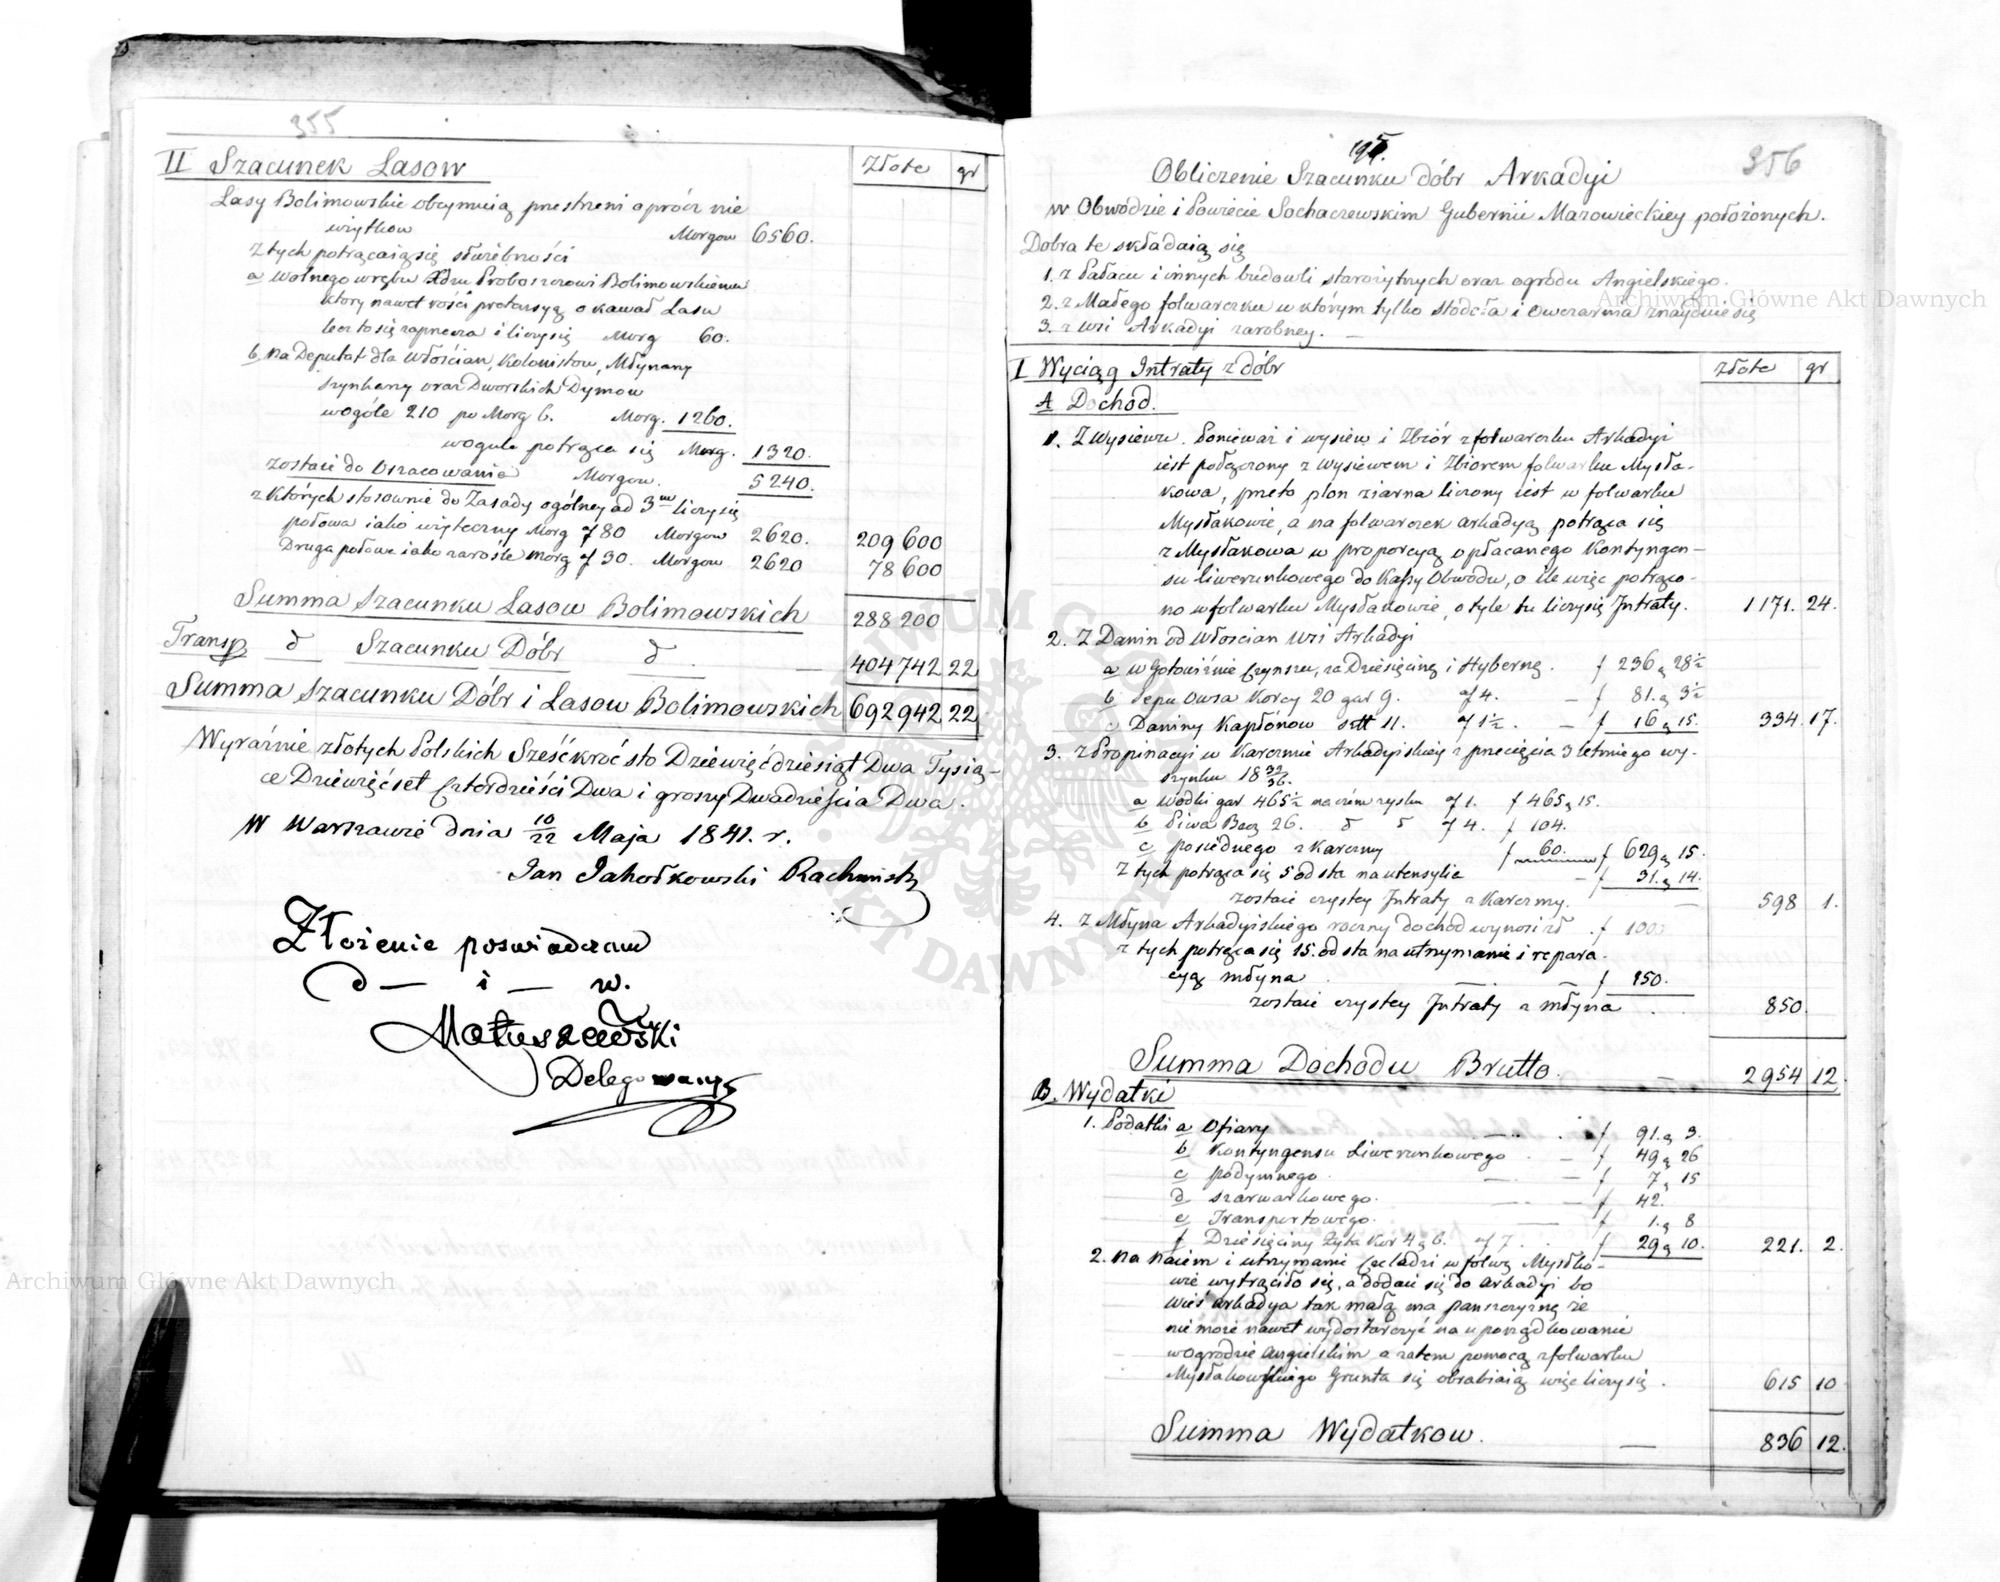 355
II Szacunek Lasow
Złote gr
Lasy Bolimowskie obeymuią przestrzeni oprócz nie
użytkow Morgow 6560.
Z tych potrącaią się służebności
a wolnego wrębu Xdzu Proboszczowi Bolimowskiemu
ktory nawet rości pretensyą o kawał Lasu
lecz to się zaprzecza i liczy się Morg 60.
b na Deputat dla Włościan, Kolonistow, Młynarzy
szynkarzy oraz Dworskich Dymow
wogóle 210 po Morg 6. Morg. 1260.
wogule potrąca się Morg. 1320.
zostaie do Oszacowania Morgow. 5240.
z których stosownie do Zasady ogólney ad 3m liczy się
połowa iako użyteczny Morg f 80 Morgow 2620. 209 600
Druga połowa iako zarośle morg f 30. Morgow 2620 78 600
Summa Szacunku Lasow Bolimowskich 288 200
Transp d Szacunku Dóbr d — 404 742 22
Summa Szacunku Dóbr i Lasow Bolimowskich 692 942 22
Wyraźnie złotych Polskich Sześćkroć sto Dziewięćdziesiąt Dwa Tysią-
ce Dziewięćset Czterdzieści Dwa i groszy Dwadzieścia Dwa.
W Warszawie dnia 10/22 Maja 1841. r.
Jan Jahołkowski Rachmistrz
Złożenie poswiadczam
d — i — w.
Matuszewski
Delegowany
356
Obliczenie Szacunku dóbr Arkadyi
w Obwodzie i Powiecie Sochaczewskim Gubernii Mazowieckiey położonych.
Dobra te składaią się
1. z Pałacu i innych budowli starożytnych oraz ogrodu Angielskiego.
2. z Małego folwarczku w którym tylko stodoła i Owczarnia znayduie się
3. z wsi Arkadyi zarobney. —
I Wyciąg Intraty z dóbr
złote gr
A Dochód.
1. Z Wysiewu. Ponieważ i wysiew i Zbiór z folwarczku Arkadyi
iest połączony z wysiewem i Zbiorem folwarku Mysła-
kowa, przeto plon ziarna liczony iest w folwarku
Mysłakowie, a na folwarczek Arkadyą potrąca się
z Mysłakowa w proporcyą opłacanego Kontyngen-
su liwerunkowego do Kassy Obwodu, o ile więc potrąco-
no w folwarku Mysłakowie, o tyle tu liczy się Intraty. 1171. 24.
2. Z Danin od Włoscian wsi Arkadyi
a w Gotowiźnie Czynszu, za Dziesięcinę i Hybernę. f 236 g 28½
b Sepu Owsa Korcy 20 gar 9. f 4. — f 81. g 3½
c Daniny Kapłónow szt 11. f 1½. — f 16 g 15. 334. 17.
3. Z Propinacyi w Karczmie Arkadyiskiey z przecięcia 3 letniego wy-
szynku 18 33/36.
a Wódki gar 465½ na czém zysku f 1. f 465 g 15.
b Piwa Becz 26. d d f 4. f 104.
c posiednego z Karczmy f 60. f 629 g 15.
Z tych potrąca się 5 od sta na utensylia — f 31. g 14.
zostaie czystey Intraty z Karczmy. — 598 1.
4. z Młyna Arkadyiskiego roczny dochod wynosi zł f 1000
z tych potrąca się 15. od sta na utrzymanie i repara
cyą młyna — — f 150.
zostaie czystey Intraty z młyna 850.
Summa Dochodu Brutto. — 2954 12.
B. Wydatki
1. Podatki a Ofiary f 91. g 3.
b Kontyngensu Liwerunkowego — f 49 g 26
c podymnego — f 7 g 15
d szarwarkowego. — f 42.
e Transportowego. — f 1. g 8
f Dziesięciny Żyta Kor 4 g 6. f 7. f 29 g 10. 221. 2.
2. na naiem i utrzymanie Czeladzi w folwz Mysłko-
wie wytrąciło się, a dodaie się do Arkadyi bo
wieś Arkadya tak małą ma panszczyznę że
nie może nawet wydostarczyć na uporządkowanie
w ogrodzie Angielskim a zatem pomocą z folwarku
Mysłakowskiego Grunta się obrabiaią więc liczy się. 615 10
Summa Wydatkow. — 836 12.
Archiwum Główne Akt Dawnych
Archiwum Główne Akt Dawnych